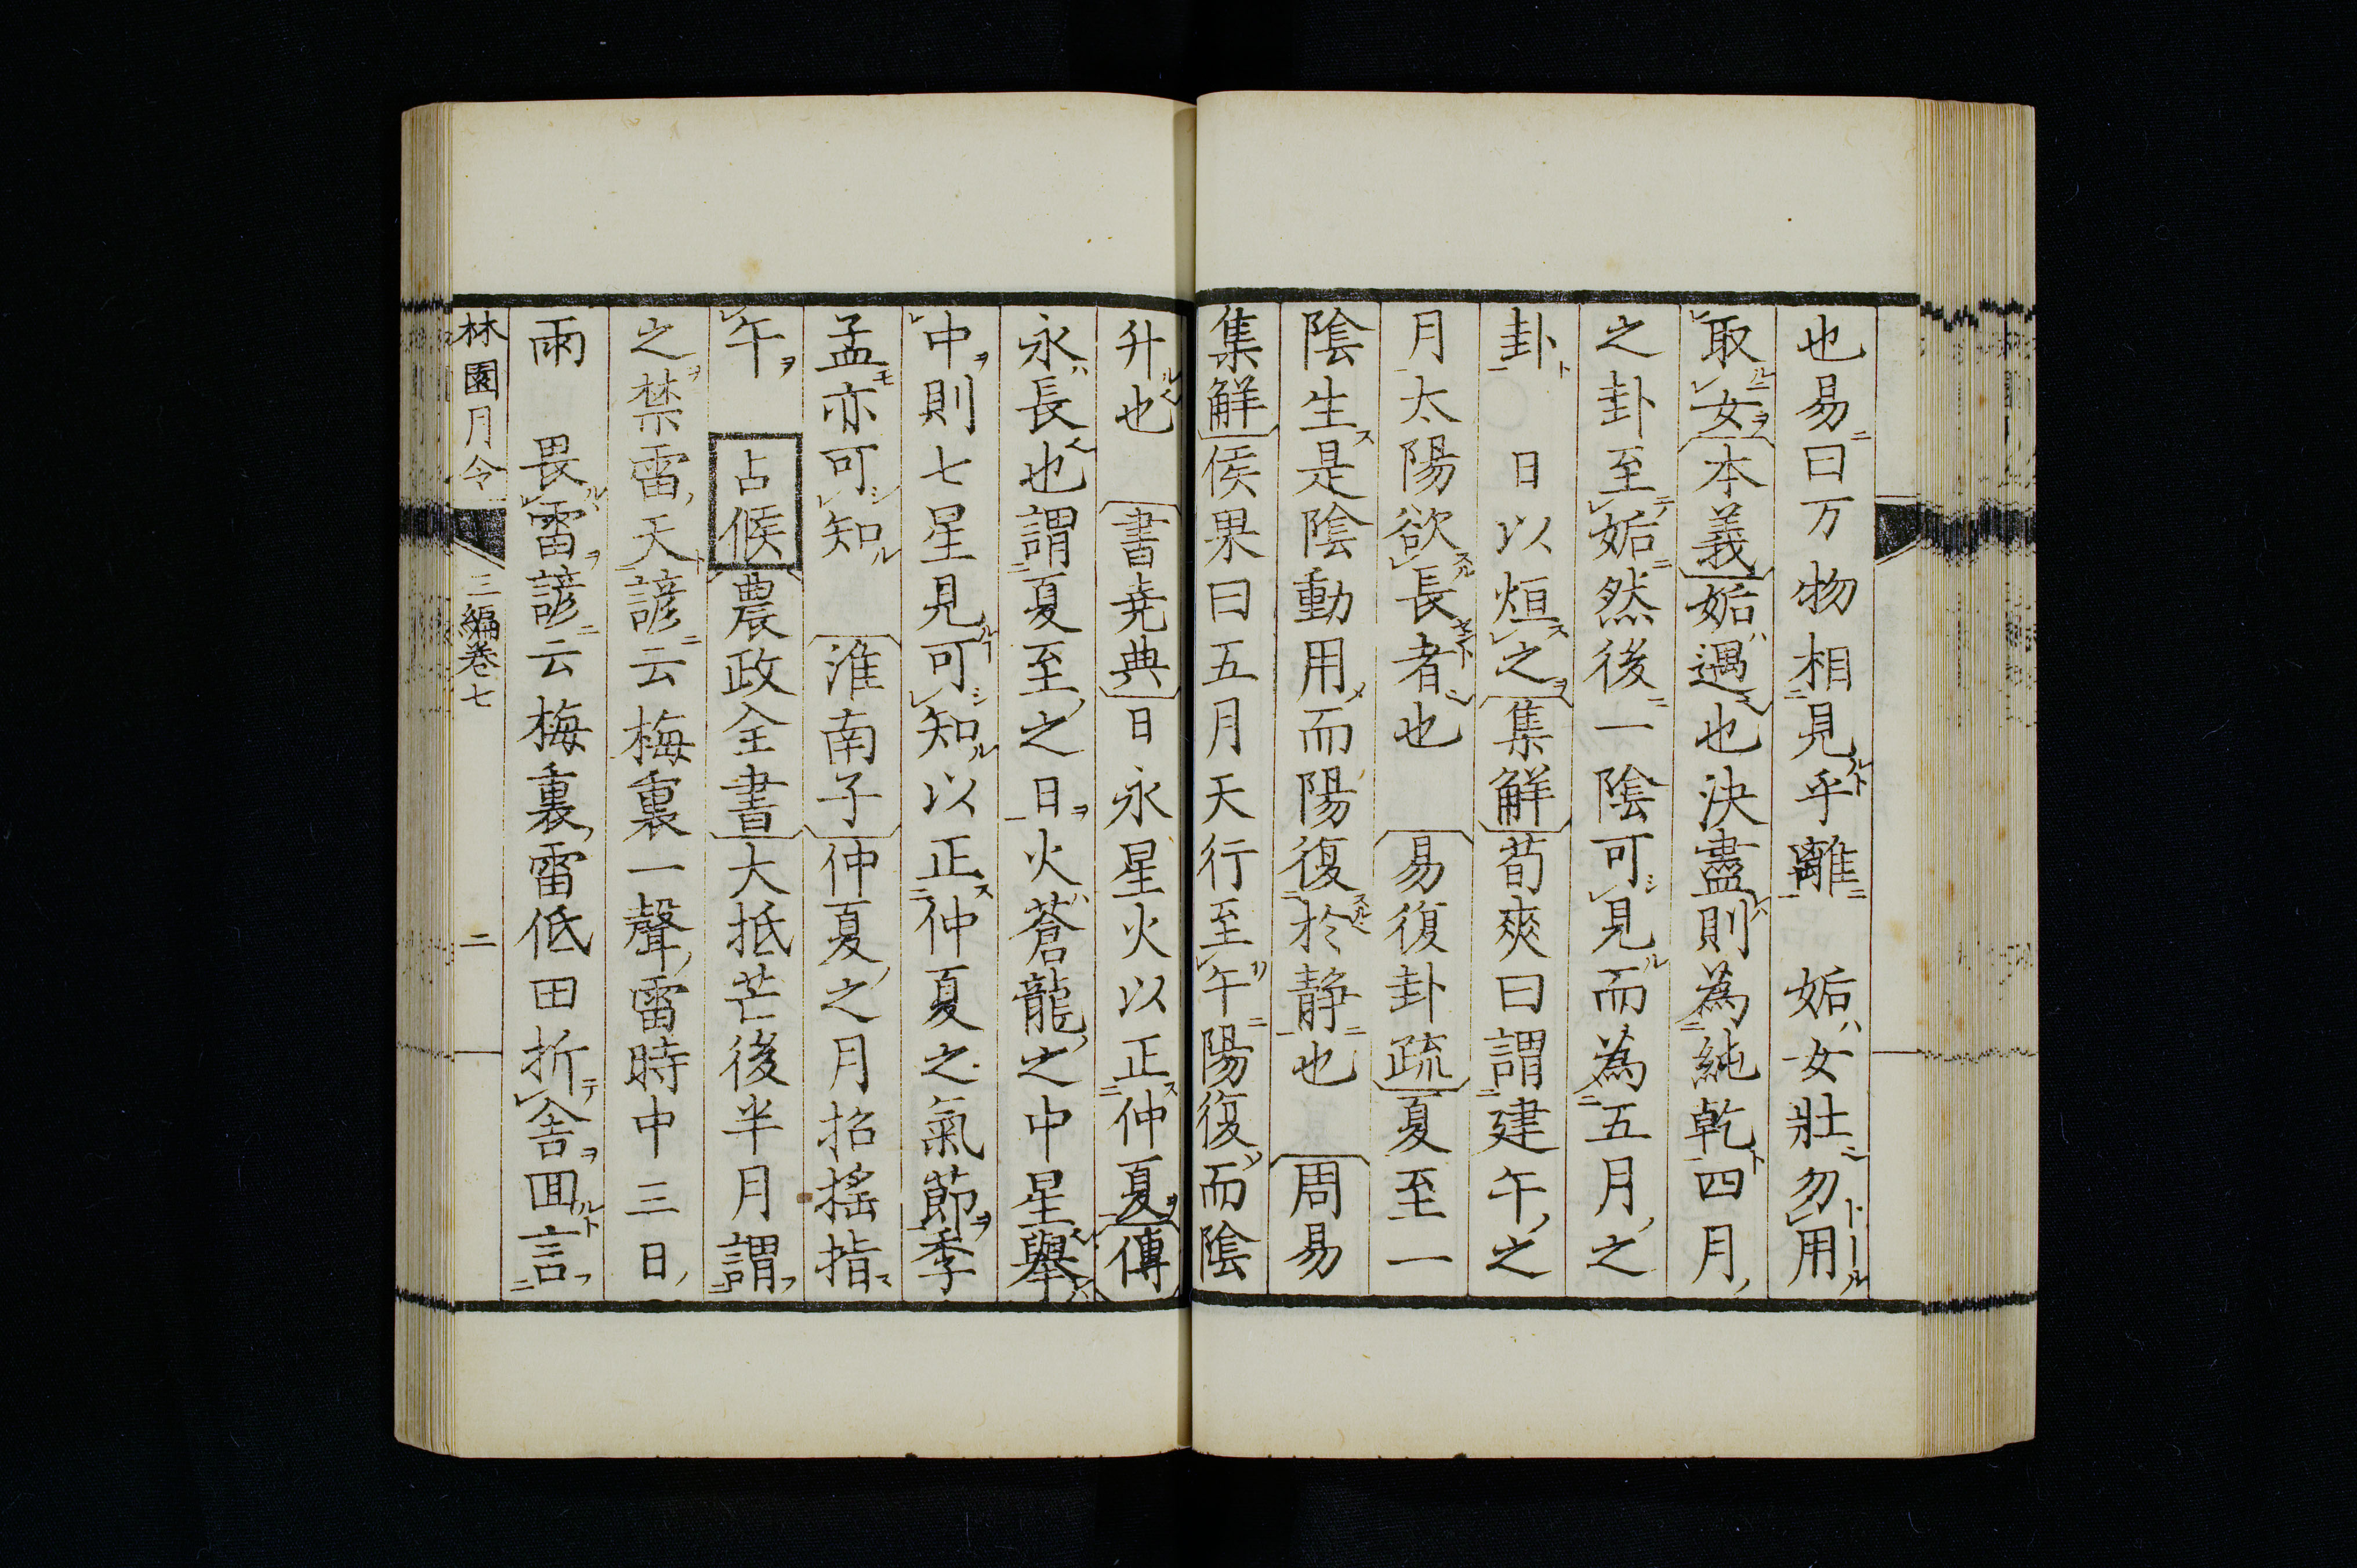 也易曰万物相見乎離　姤女壯勿用
取女本義姤遇也決盡則為純乾四月
之卦至姤然後一陰可見而為五月之
卦　日以烜之集解荀爽曰謂建午之
月太陽欲長者也　易復卦疏夏至一
陰生是陰動用而陽復於静也　周易
集解侯果曰五月天行至午陽復而陰
升也　書堯典日永星火以正仲夏傳
永長也謂夏至之日火蒼龍之中星舉
中則七星見可知以正仲夏之氣節季
孟亦可知　淮南子仲夏之月招搖指
午　占候農政全書大抵芒後半月謂
之禁雷天諺云梅裏一聲雷時中三日
雨　畏雷諺云梅裏雷低田折舍囬言
林園月令　三編卷七　二